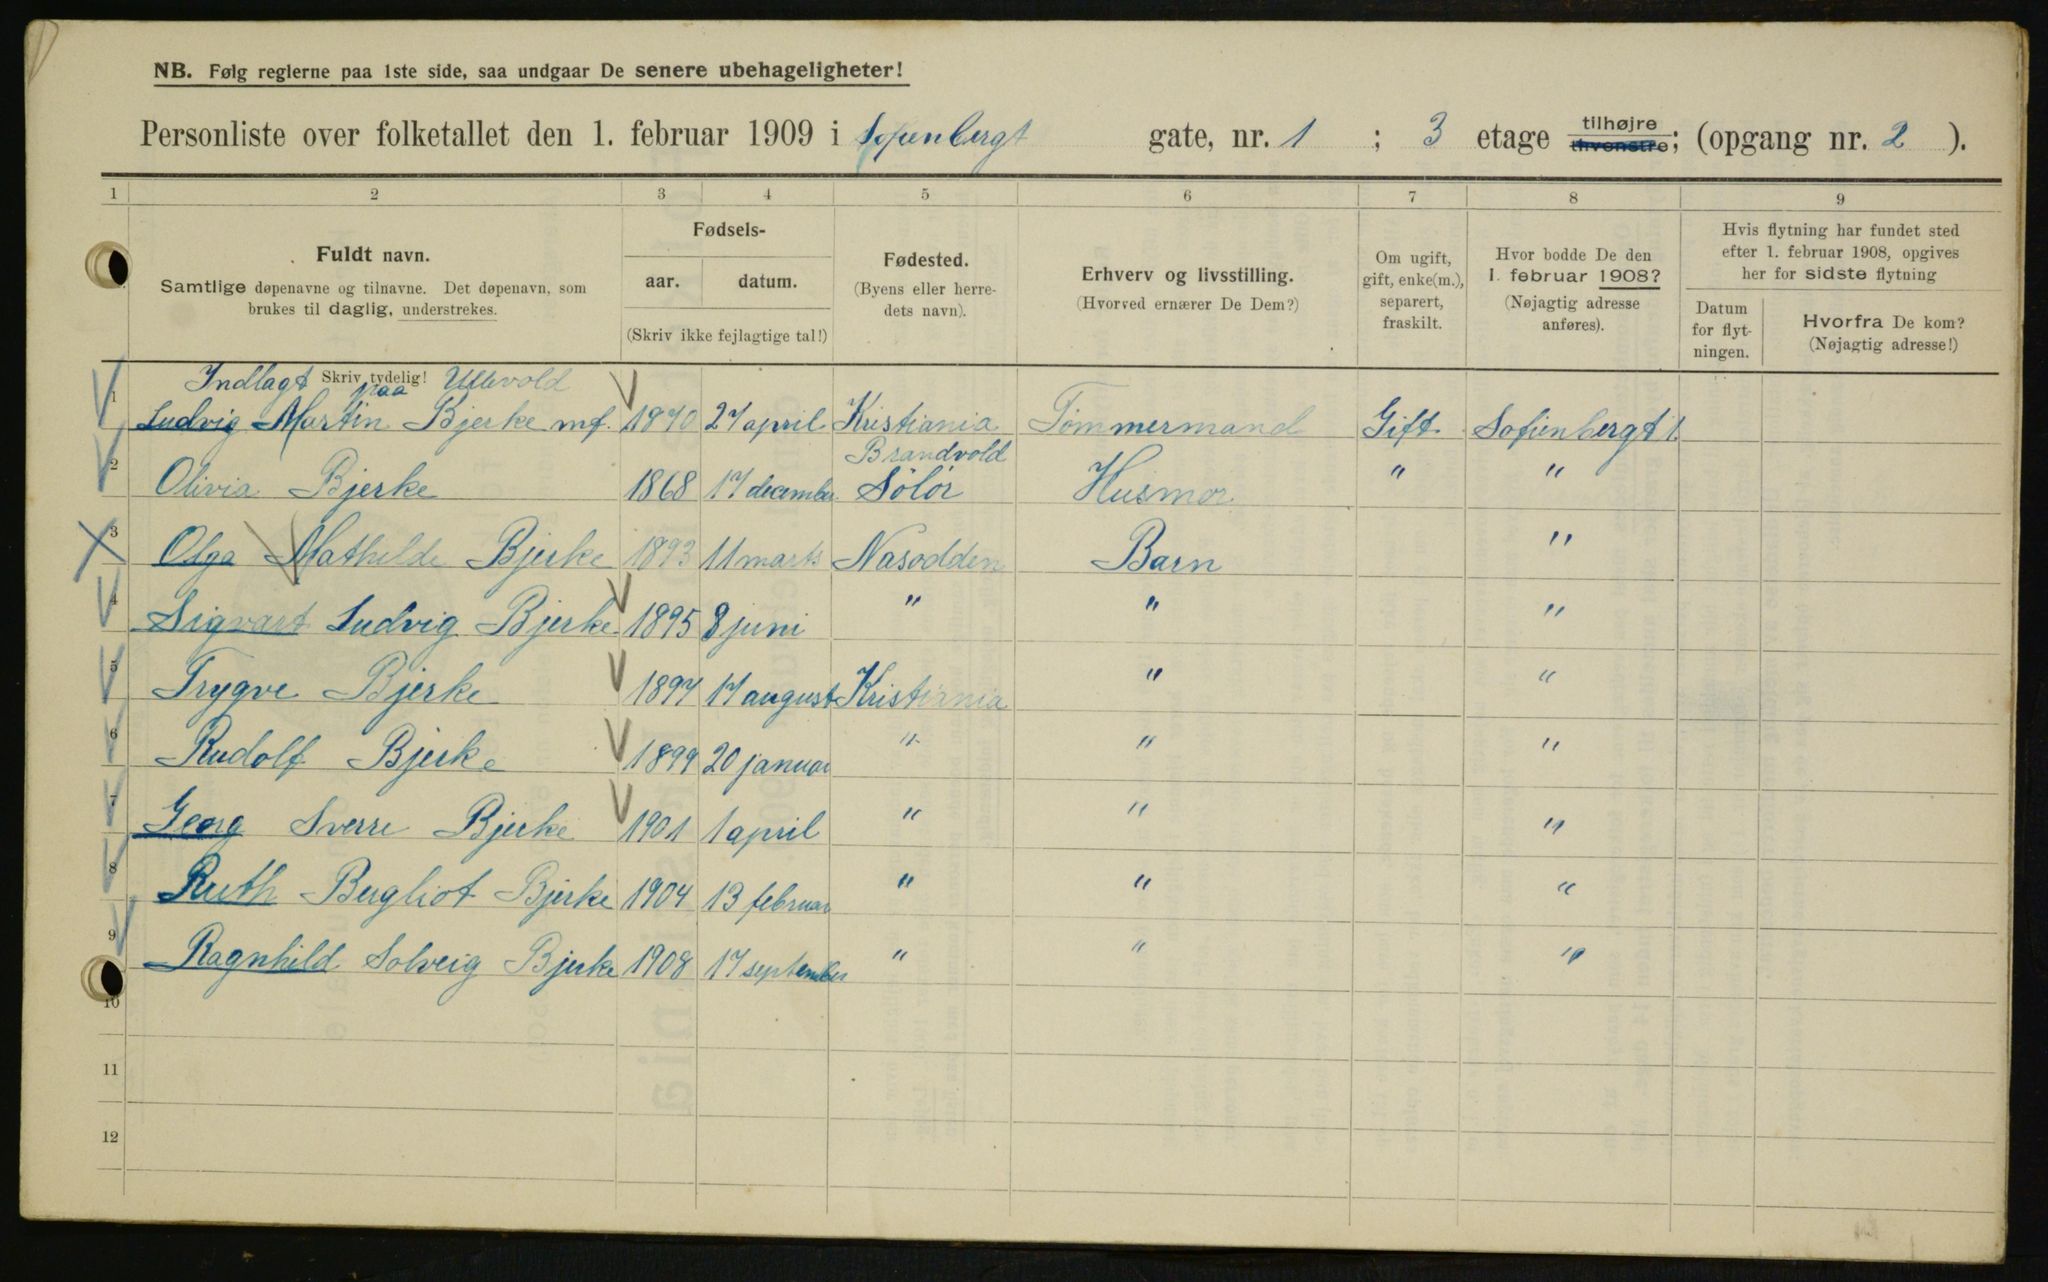 NB. Følg reglerne paa 1ste side, saa undgaar De senere ubehageligheter!
Personliste over folketallet den 1. februar 1909 i Sofienbergt gate, nr. 1 ; 3 etage tilhøjre tilvenstre; (opgang nr. 2 ).
1 2 3 4 5 6 7 8 9
Fuldt navn.
Samtlige døpenavne og tilnavne. Det døpenavn, som
brukes til daglig, understrekes.
Fødsels-
aar. datum.
(Skriv ikke fejlagtige tal!)
Fødested.
(Byens eller herre-
dets navn).
Erhverv og livsstilling.
(Hvorved ernærer De Dem?)
Om ugift,
gift, enke(m.),
separert,
fraskilt.
Hvor bodde De den
1. februar 1908?
(Nøjagtig adresse
anføres).
Hvis flytning har fundet sted
efter 1. februar 1908, opgives
her for sidste flytning
Datum
for flyt-
ningen.
Hvorfra De kom?
(Nøjagtig adresse!)
Skriv tydelig!
Indlagt paa Ullevold
1 Ludvig Martin Bjerke mf. 1870 27 april Kristiania Tømmermand Gift Sofienbergt 1.
Brandvold
2 Olivia Bjerke 1868 17 december Sölör Husmor " "
3 Olga Mathilde Bjerke 1893 11 marts Nasodden Barn "
4 Sigvart Ludvig Bjerke 1895 8 juni " " "
5 Trygve Bjerke 1897 17 august Kristiania " "
6 Rudolf Bjerke 1899 20 januar " " "
7 Georg Sverre Bjerke 1901 1 april " " "
8 Ruth Bergliot Bjerke 1904 13 februar " " "
9 Ragnhild Solveig Bjerke 1908 17 september " " "
10
11
12